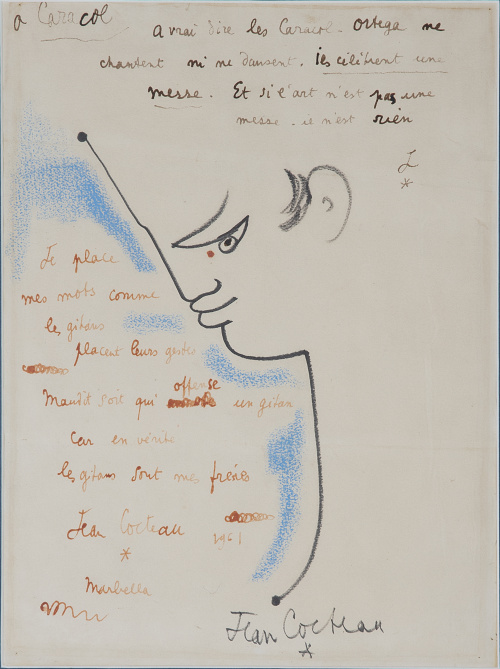 à Caracol
a vrai dire les Caracol. ortega ne
chantent ni ne dansent. ils célèbrent une
messe. Et si l'art n'est pas une
messe. il n'est rien
*
Je place
mes mots comme
les gitans
placent leurs gestes
offense
Maudit soit qui un gitan
car en vérité
les gitans sont mes frères
Jean Cocteau 1961
*
Marbella
Jean Cocteau
*